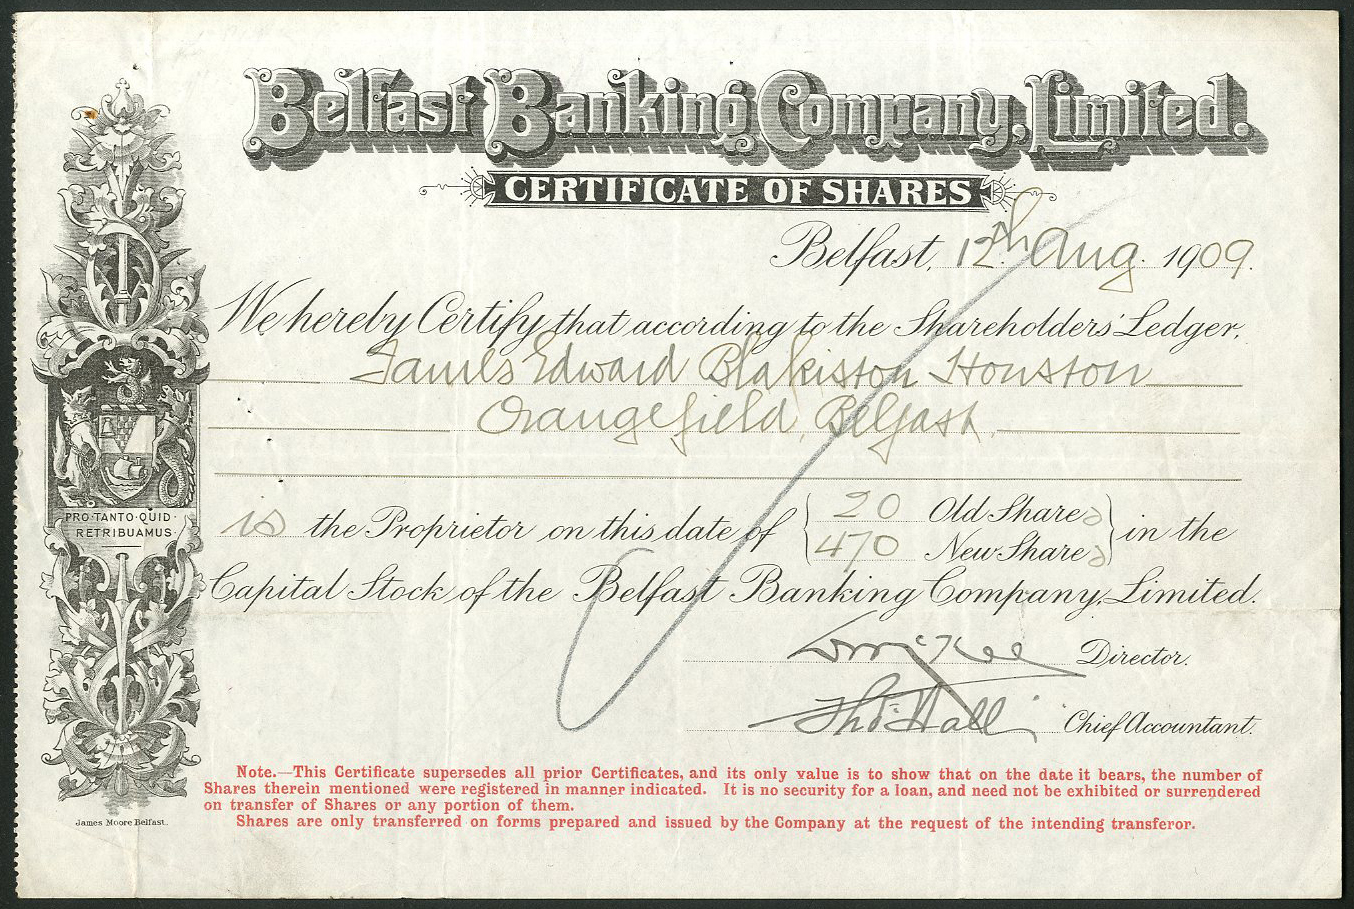 Belfast Banking Company, Limited.
CERTIFICATE OF SHARES
Belfast, 12th Aug. 1909.
We hereby Certify that according to the Shareholders' Ledger,
James Edward Blakiston Houston
Orangefield, Belfast,
is the Proprietor on this date of { 20 Old Shares
470 New Shares } in the
Capital Stock of the Belfast Banking Company, Limited.
Director.
Thos. Hall Chief Accountant.
PRO·TANTO·QUID·
RETRIBUAMUS·
Note.—This Certificate supersedes all prior Certificates, and its only value is to show that on the date it bears, the number of
Shares therein mentioned were registered in manner indicated. It is no security for a loan, and need not be exhibited or surrendered
on transfer of Shares or any portion of them.
Shares are only transferred on forms prepared and issued by the Company at the request of the intending transferor.
James Moore Belfast.